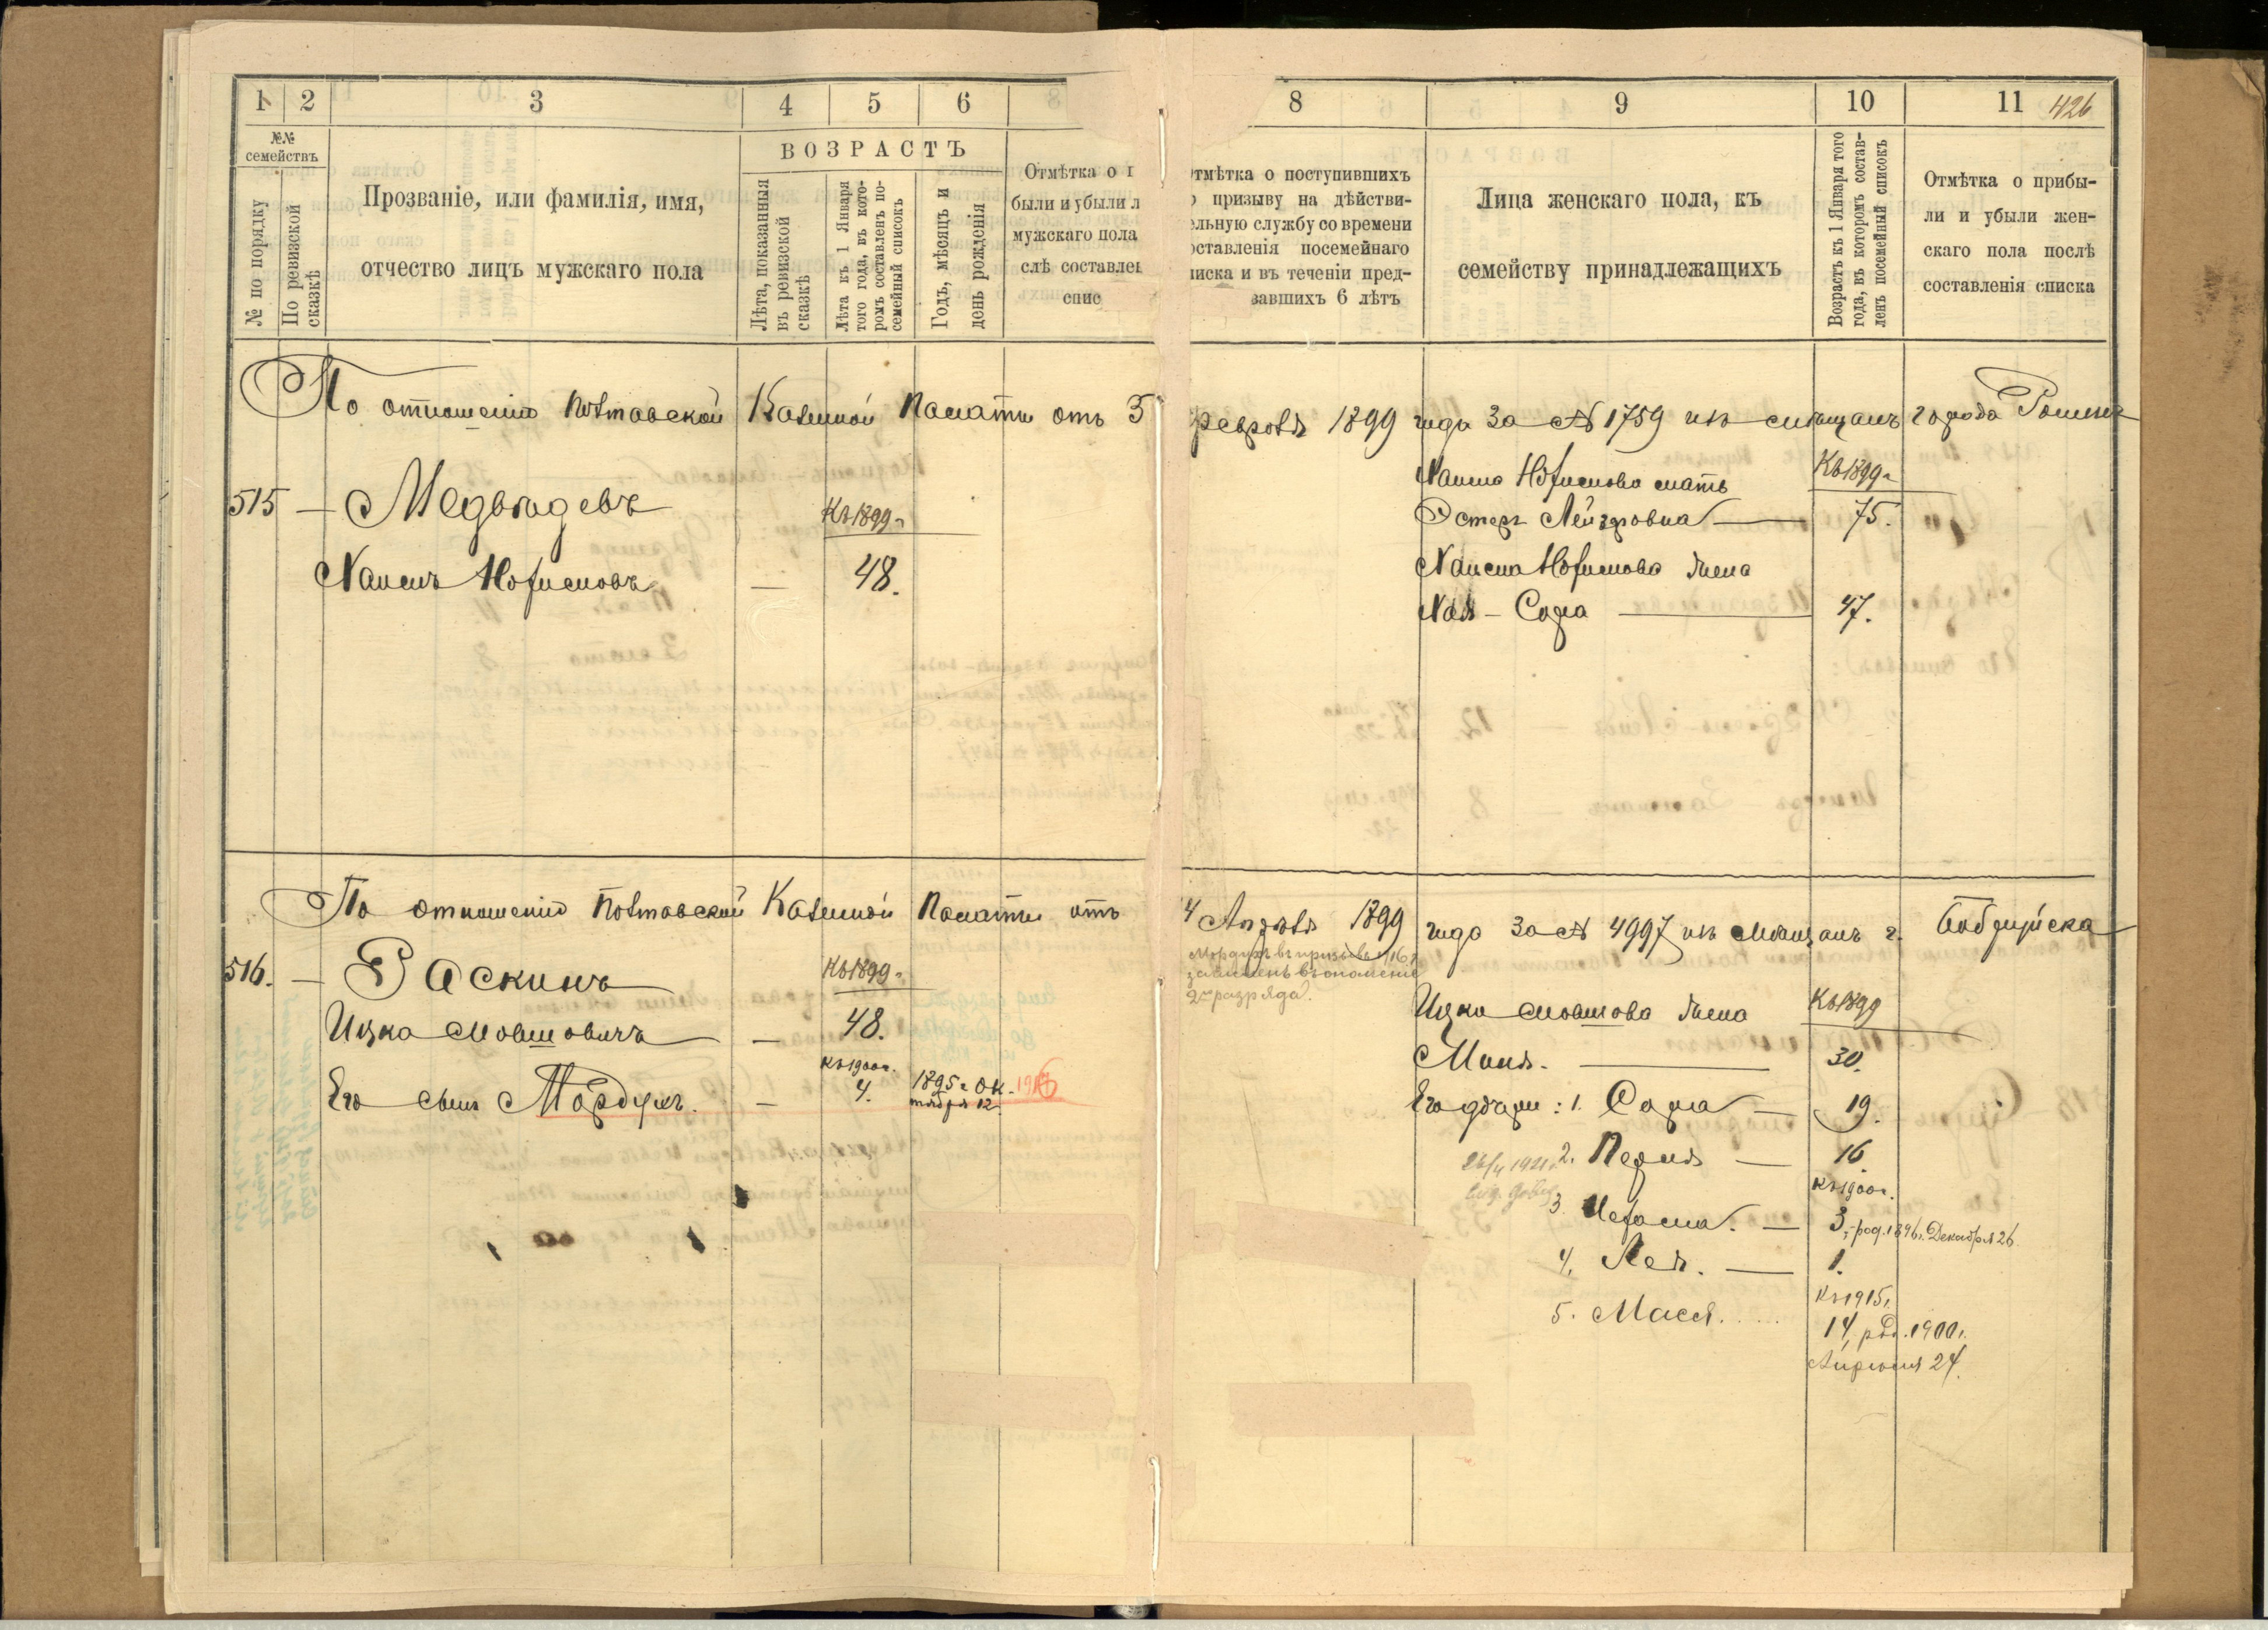 1 2 3 4 5 6 8
№№ семействъ
№ по порядку
По ревизской сказкѣ
Прозваніе, или фамилія, имя,
отчество лицъ мужскаго пола
ВОЗРАСТЪ
Лѣта, показанныя въ ревизской сказкѣ
Лѣта къ 1 Января того года, въ которомъ составленъ по-семейный списокъ
Годъ, мѣсяцъ и день рожденія
Отмѣтка о п
были и убыли л
мужскаго пола
слѣ составлен
спис
8 9 10 11 426
тмѣтка о поступившихъ
о призыву на дѣйстви-
ельную службу со времени
оставленія посемейнаго
писка и въ теченіи пред-
завшихъ 6 лѣтъ
Лица женскаго пола, къ
семейству принадлежащихъ
Возрастъ къ 1 Января того года, въ которомъ составленъ посемейный списокъ
Отмѣтка о прибы-
ли и убыли жен-
скаго пола послѣ
составленія списка
По отношенію Полтавской Казенной Палаты отъ 5 февраля 1899 года за № 1759 изъ мѣщанъ города
515 — Медвѣдевъ
Къ 1899 г.
— 48.
мать
Къ 1899 г.
Эстеръ Лейзеровна — 75.
жена
Хая — Сора — 47.
По отношенію Полтавской Казенной Палаты отъ 4 Апрѣля 1899 года за № 4997 изъ мѣщанъ г. Бобруйска
516. — Раскинъ
Къ 1899 г.
Ицка Мовшовичъ — 48.
Къ 1900 г.
Его сынъ Мордухъ. — 4. 1895 г. Ок- 1916
тября 12.
Мордухъ въ призывъ 1916 г.
зачисленъ въ ополченіе
2го разряда.
Ицки Мовшова жена
Къ 1899
30.
Его дочери: 1. Сора — 19.
2. Песя — 16
Къ 1900 г.
3. 3, род. 1896 г. Декабря 26.
4. Лея. — 1.
Къ 1915 г.
5. Масся..... 14, род. 1900 г.
Апрѣля 24.